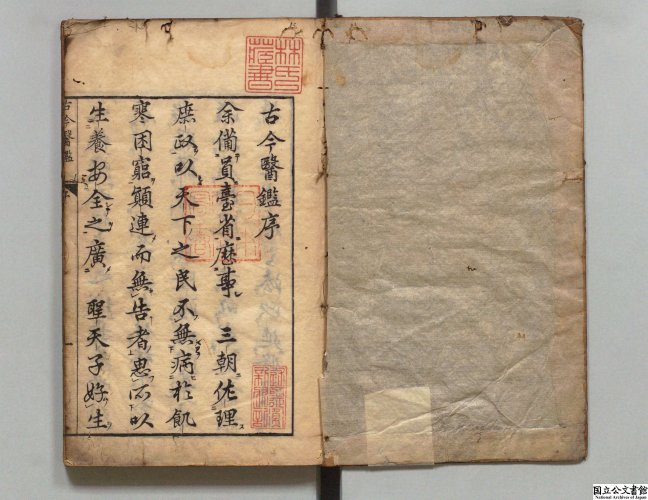 古今醫鑑序
余備員臺省歷事三朝佐理
庶政以天下之民不無病於飢
寒困窮顛連而無告者思所以
生養安全之廣聖天子好生
古今醫鑑
林氏藏書
国立公文書館
National Archives of Japan